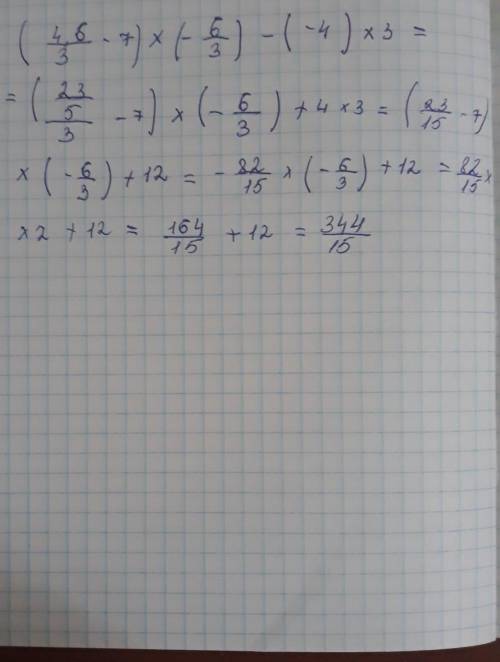 (4,6/3 - 7) × (- 6/3) - (-4) × 3 =
= ((23/5)/3 - 7) × (- 6/3) + 4 × 3 = (23/15 - 7)
× (- 6/3) + 12 = - 82/15 × (- 6/3) + 12 = 82/15 ×
× 2 + 12 = 164/15 + 12 = 344/15